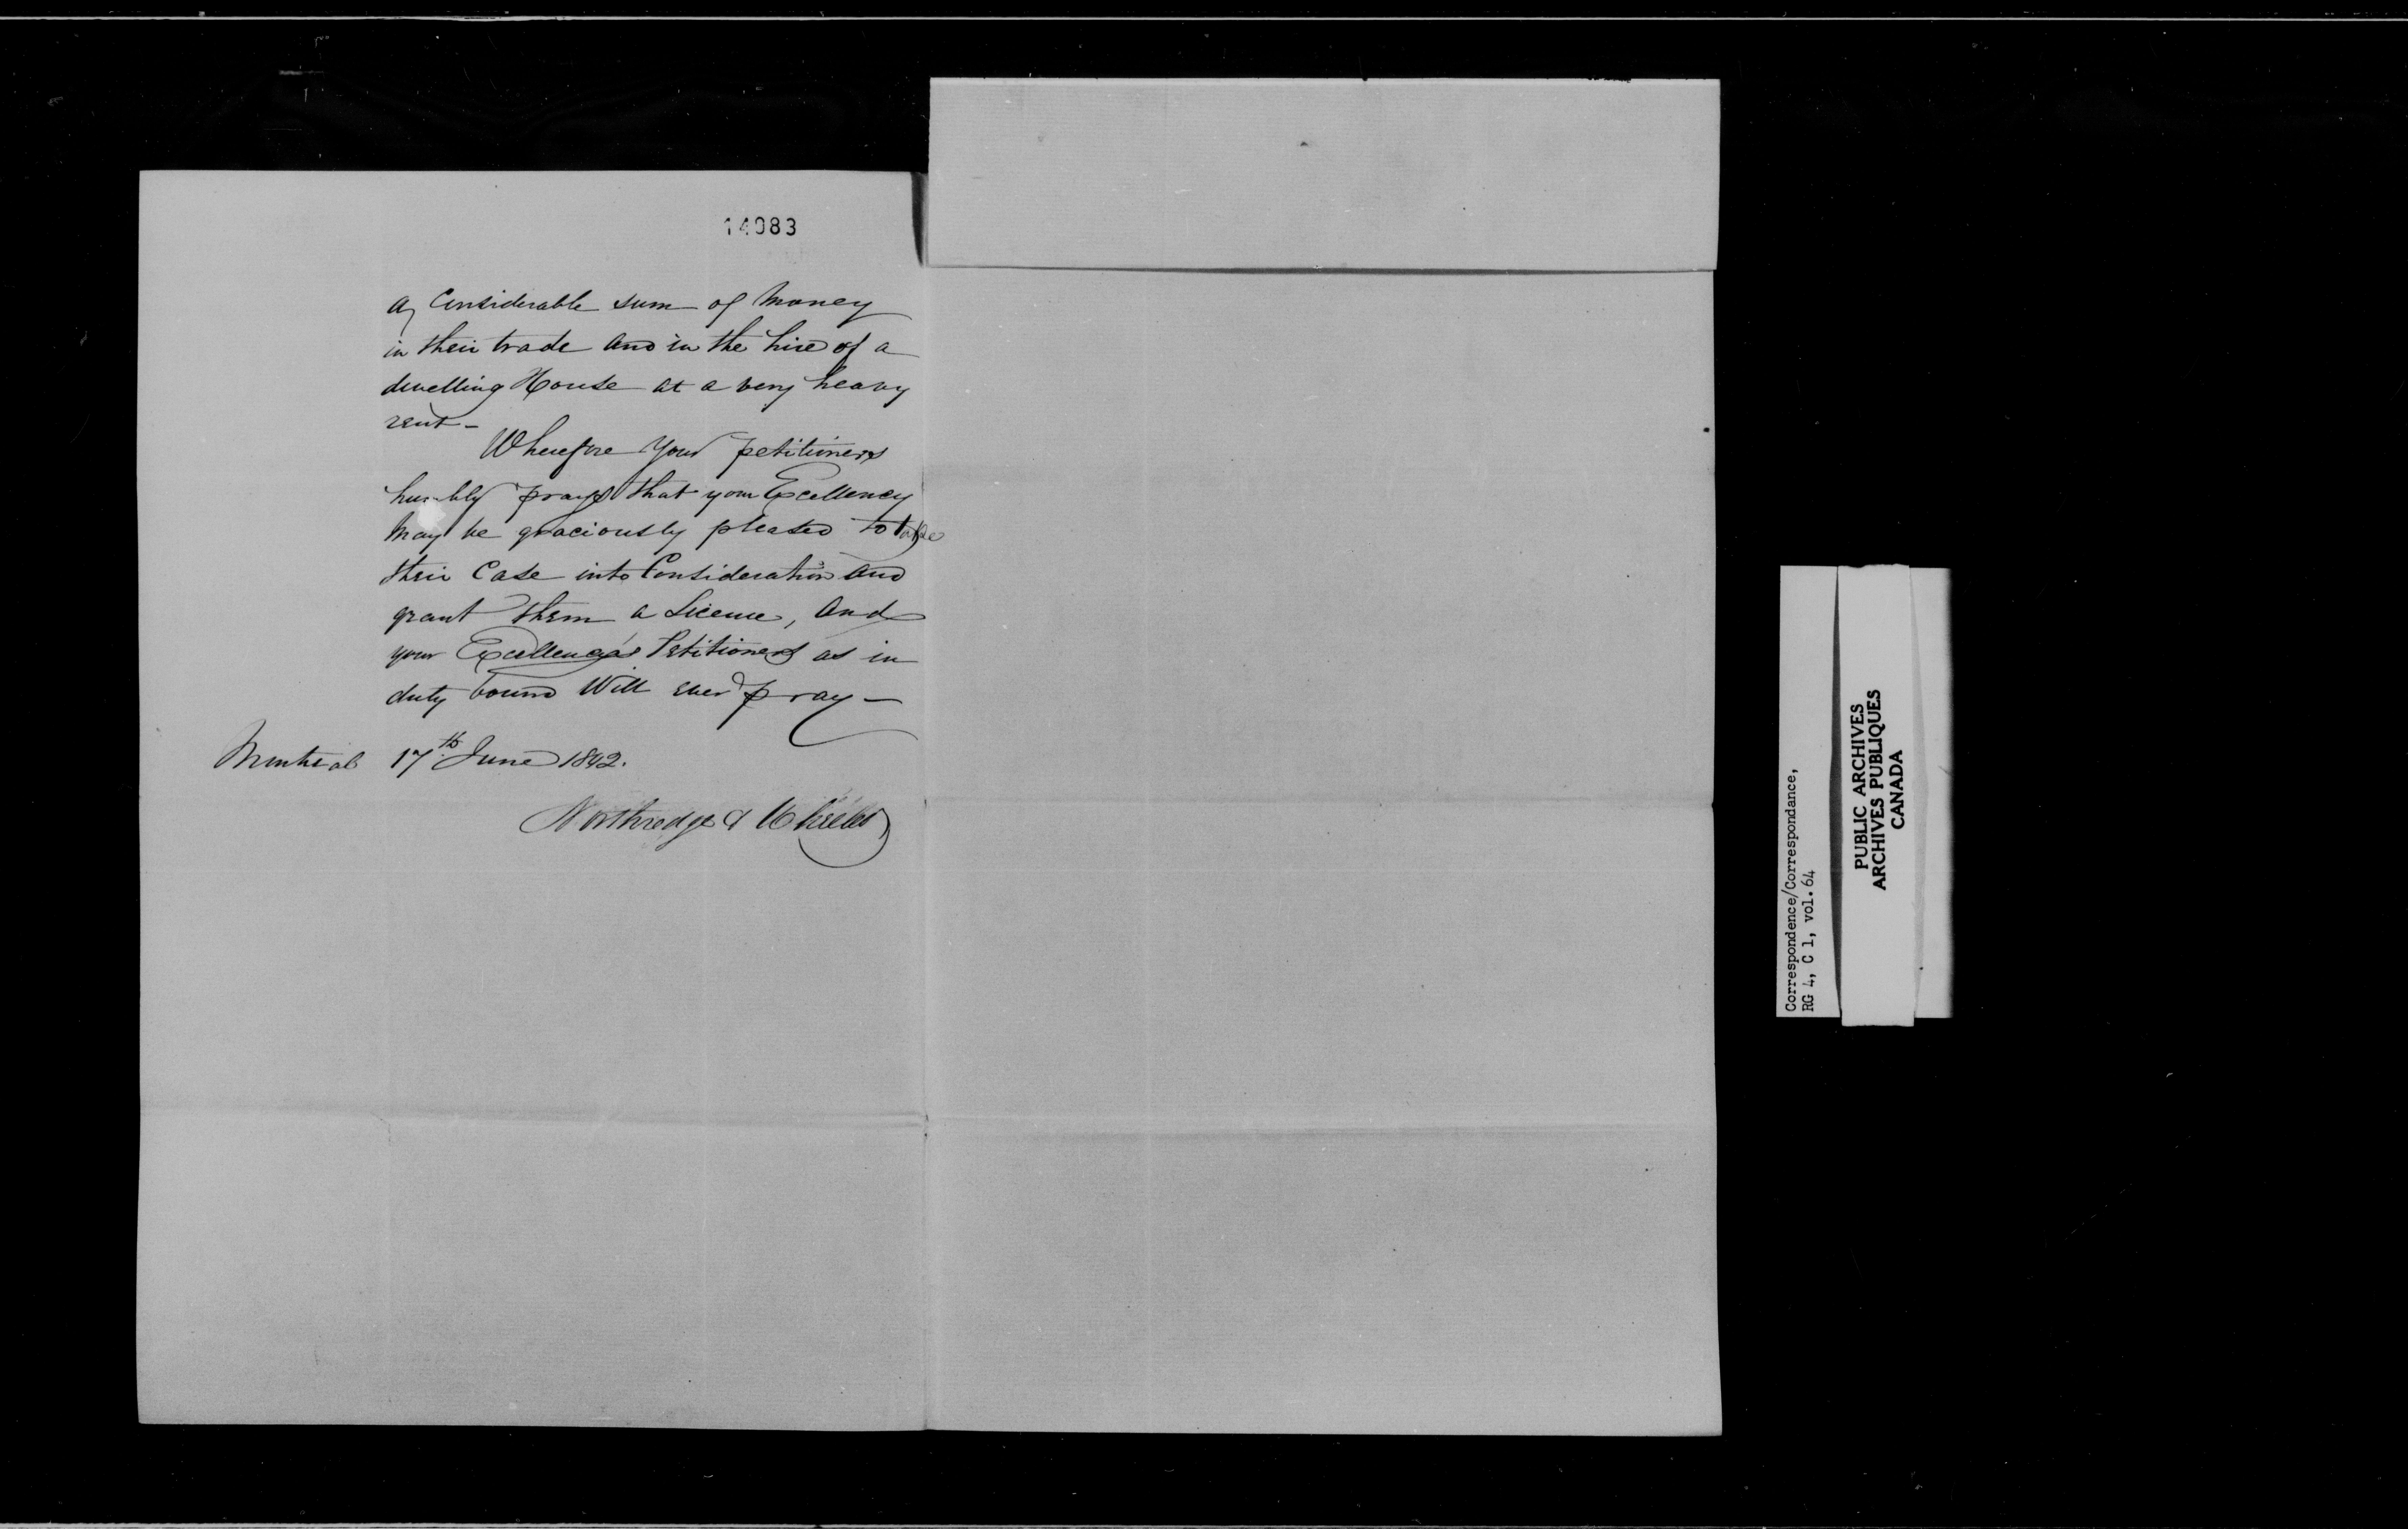 14083
a Considerable sum of Money
in their trade and in the hire of a
dwelling House at a very heavy
rent -
Wherefore your petitioners
humbly prays that your Excellency
may be graciously pleased to take
their Case into Consideration and
grant them a Licence, And
your Excellency's Petitioners as in
duty bound Will ever pray -
Montreal 17th June 1842.
Northredge &
Correspondence/Correspondance,
RG 4, C 1, vol. 64
PUBLIC ARCHIVES
ARCHIVES PUBLIQUES
CANADA